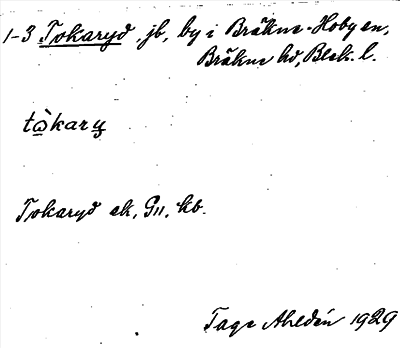 1-3 Tokaryd, jb, by i Bräkne-Hoby sn,
Bräkne hd, Blek. l.
tò̱kary̱
Tokaryd ek, G11, kb.
Tage Ahldén 1929